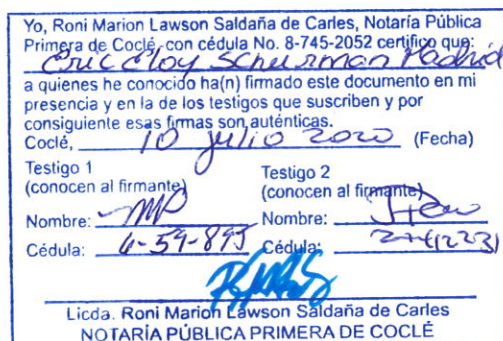 Yo, Roni Marion Lawson Saldaña de Carles, Notaría Pública
Primera de Coclé, con cédula No. 8-745-2052 certifico que:
Eric Eloy Scheurman Madrid
a quienes he conocido ha(n) firmado este documento en mi
presencia y en la de los testigos que suscriben y por
consiguiente esas firmas son auténticas.
Coclé, 10 julio 2020 (Fecha)
Testigo 1 Testigo 2
(conocen al firmante) (conocen al firmante)
Nombre: Nombre:
Cédula: 6-59-895 Cédula:
Licda. Roni Marion Lawson Saldaña de Carles
NOTARÍA PÚBLICA PRIMERA DE COCLÉ